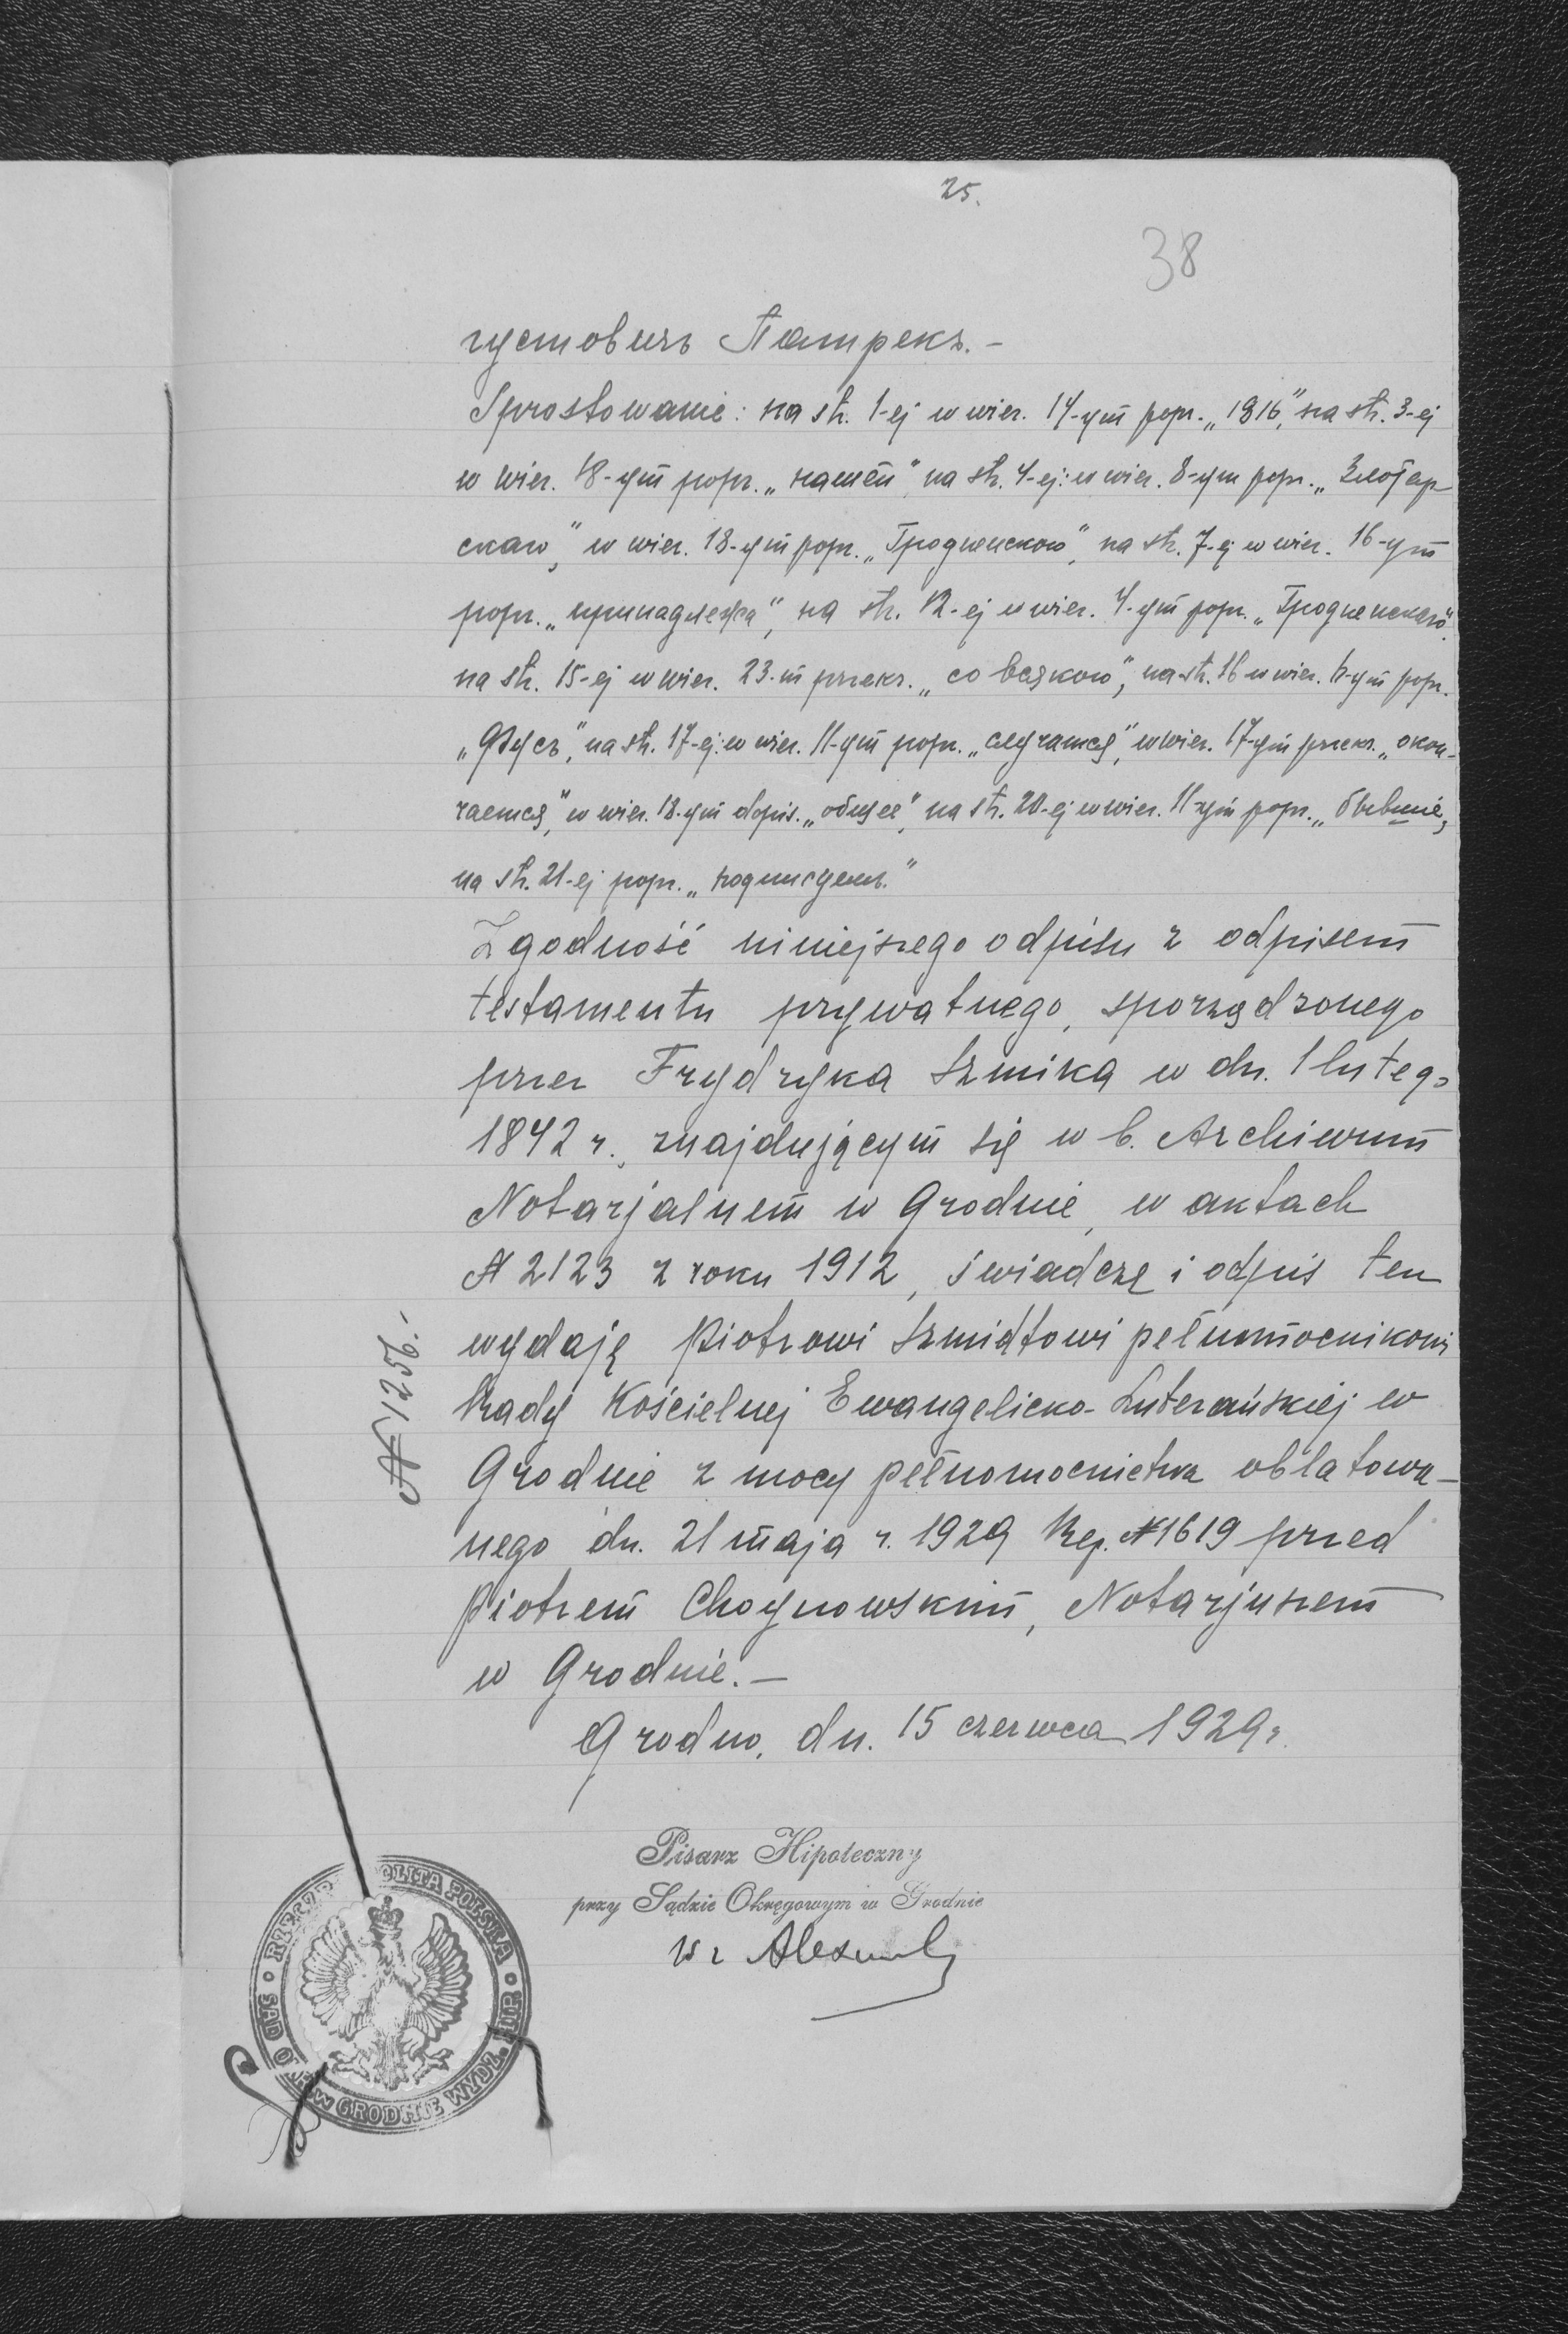 25.
38
густовичъ Патрекъ.-
Sprostowanie: na str. 1-ej w wier. 14-ym popr. „1816,” na str. 3-ej
w wier. 18-ym popr. „нашей” na str. 4-ej: w wier. 8-ym popr. „Злотар-
скаго,” w wier. 18-ym popr. „Гродненскою”, na str. 7-ej w wier. 16-ym
popr. „принадлежа”, na str. 12-ej w wier. 4-ym popr. „Гродненскаго”.
na str. 15-ej w wier. 23-m przekr. „со всякою”, na str. 16 w wier. 6-ym popr.
„Фусъ,” na str. 17-ej: w wier. 11-ym popr. „случатся,” w wier. 17-ym przekr. „окон-
чается,” w wier. 18-ym dopis. „общее”, na str. 20-ej w wier. 11-ym popr. „бывшіе,
na str. 21-ej popr. „
Zgodność niniejszego odpisu z odpisem
testamentu prywatnego, sporządzonego
przez Frydryka Szmika w dn. 1 lutego
1842 r., znajdującym się w b. Archiwum
Notarjalnem w Grodnie, w aktach
№ 2123 z roku 1912, świadczę i odpis ten
wydaję Piotrowi Szmidtowi pełnomocnikowi
Rady Kościelnej Ewangelicko-Luterańskiej w
Grodnie z mocy pełnomocnictwa oblatowa-
nego dn. 21 maja r. 1929 Rep. № 1619 przed
Piotrem Choynowskim, Notarjuszem
w Grodnie.-
Grodno, dn. 15 czerwca 1929 r.
№ 1256.-
Pisarz Hipoteczny
przy Sądzie Okręgowym w Grodnie
RZECZP OLITA POLSKA
SĄD O W GRODNIE WYDZ.